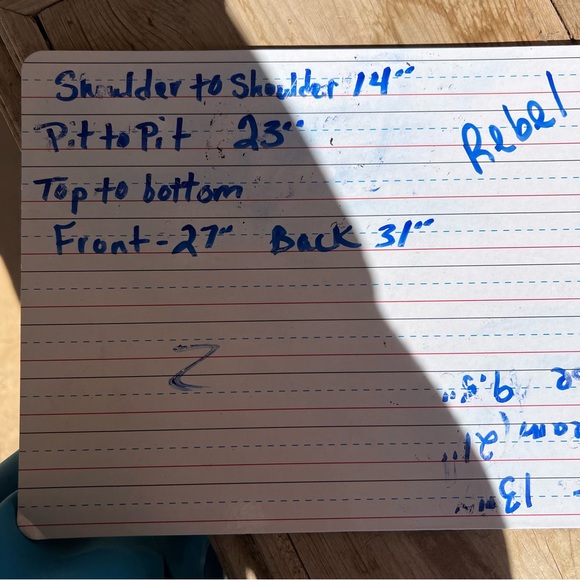 Shoulder to Shoulder 14"
Pit to Pit 23"
Rebel
Top to bottom
Front - 27" Back 31"
2
9.5"
21"
13"